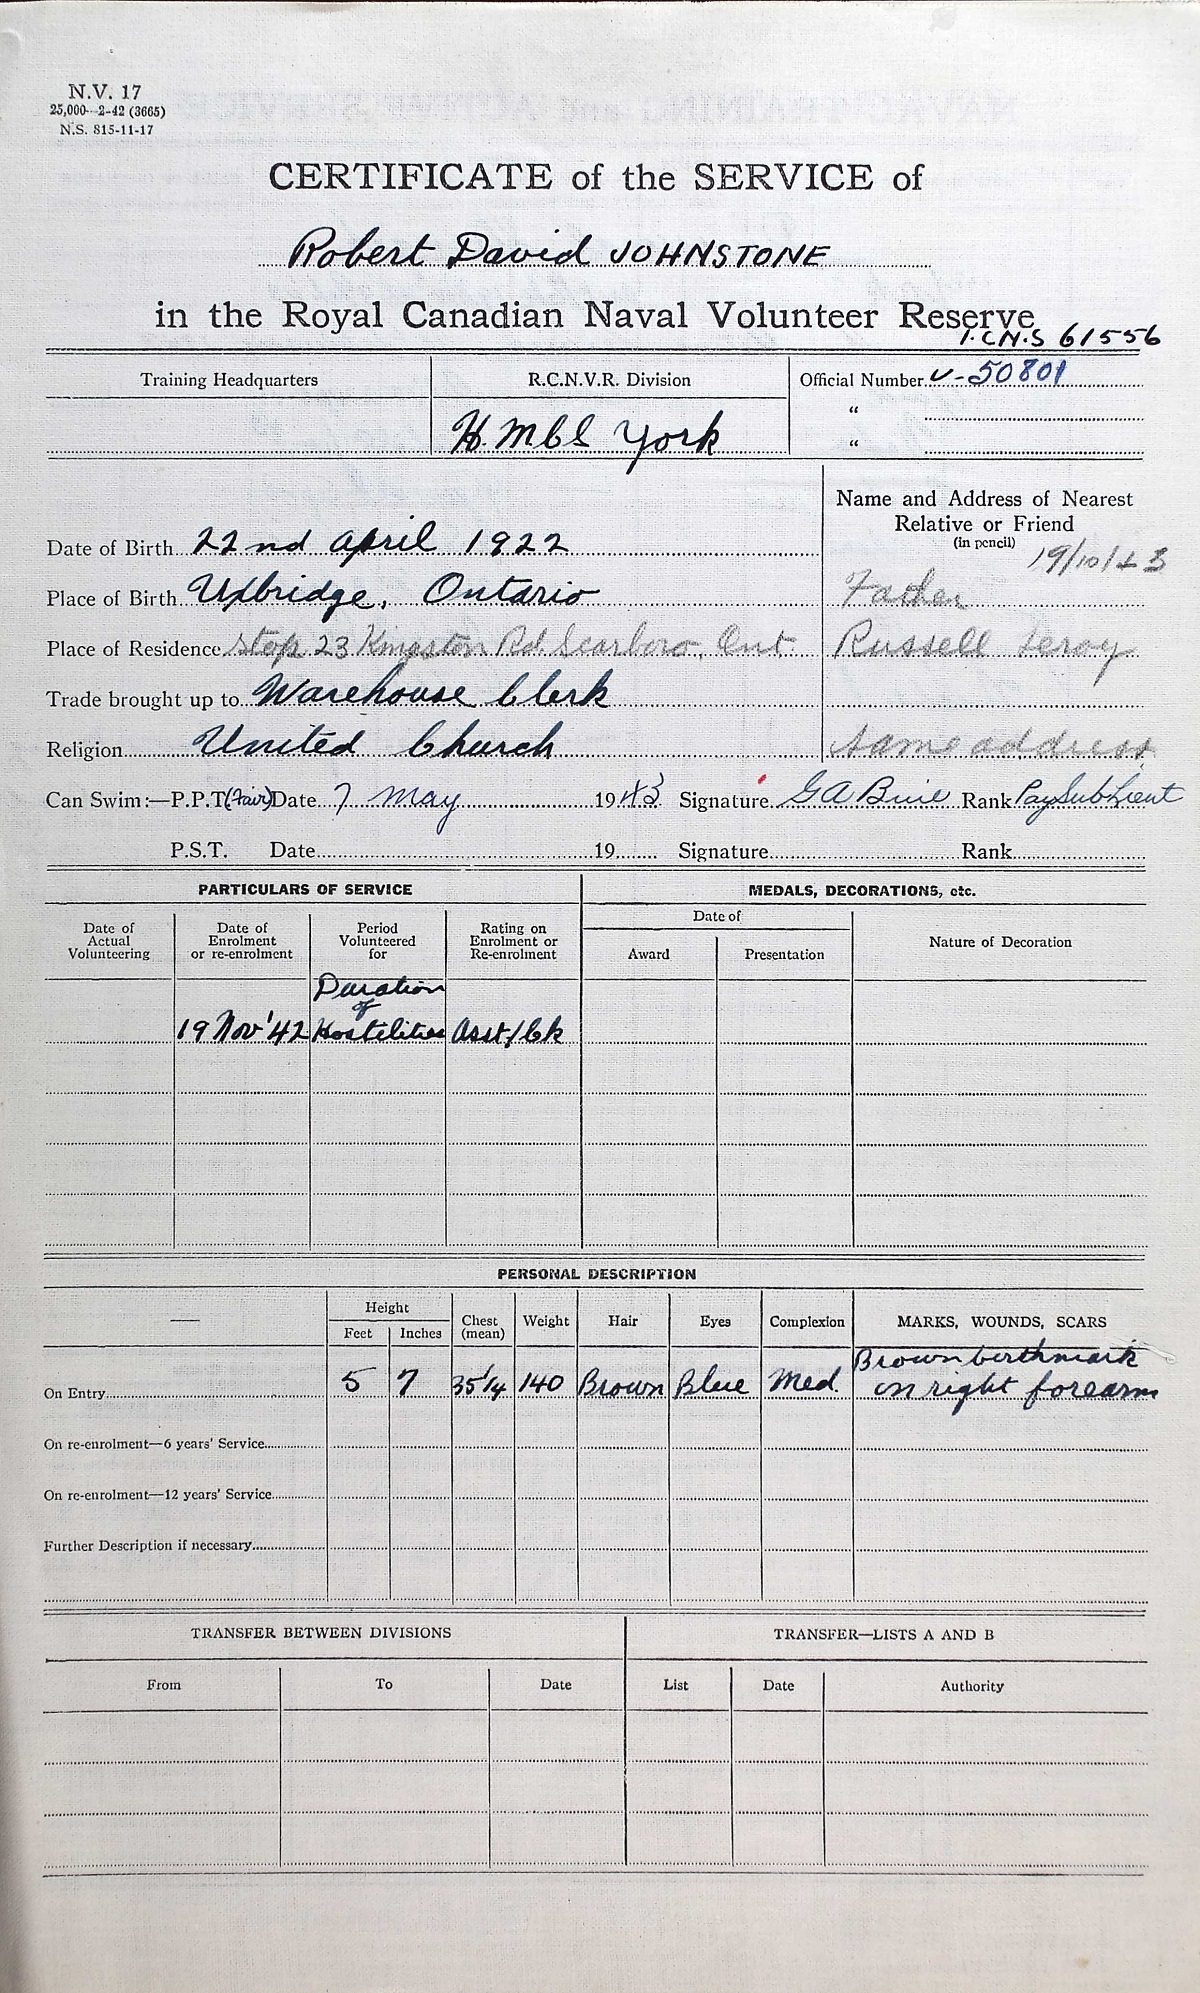 N.V. 17
25,000—2-42 (3665)
N.S. 815-11-17
CERTIFICATE of the SERVICE of
Robert David JOHNSTONE
in the Royal Canadian Naval Volunteer Reserve
I.C.N.S 61556
Training Headquarters R.C.N.V.R. Division Official Number V-50801
"
H.M.C.S York "
Name and Address of Nearest
Relative or Friend
(in pencil)
19/10/43
Date of Birth 22nd April 1922
Place of Birth Uxbridge, Ontario Father
Place of Residence Stop 23 Kingston Rd. Scarboro, Ont. Russell Leroy
Trade brought up to Warehouse Clerk
Religion United Church same address
Can Swim:—P.P.T (Fair) Date 7 May 1943 Signature G A Rank Pay Sub Lieut
P.S.T. Date 19 Signature Rank
PARTICULARS OF SERVICE MEDALS, DECORATIONS, etc.
Date of Actual Volunteering Date of Enrolment or re-enrolment Period Volunteered for Rating on Enrolment or Re-enrolment Date of Award Presentation Nature of Decoration
19 Nov '42 Duration of Hostilities Asst/Ck
PERSONAL DESCRIPTION
— Height Feet Inches Chest (mean) Weight Hair Eyes Complexion MARKS, WOUNDS, SCARS
On Entry 5 7 35 1/4 140 Brown Blue Med. Brown birthmark on right forearm
On re-enrolment—6 years' Service
On re-enrolment—12 years' Service
Further Description if necessary
TRANSFER BETWEEN DIVISIONS TRANSFER—LISTS A AND B
From To Date List Date Authority